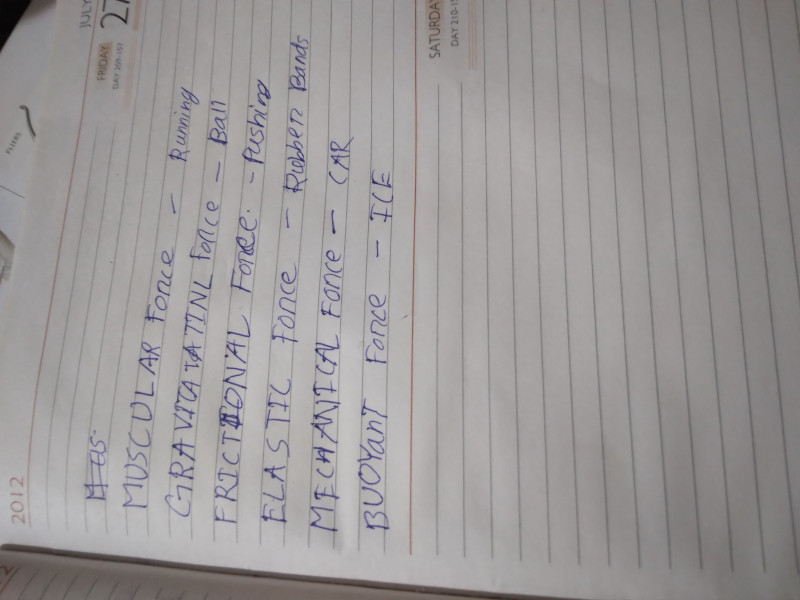 2012
JULY
27
FRIDAY
DAY 209-157
MUSCULAR Force - Running
GRAVITATATINL force - Ball
FRICTIONAL Force. - Pushing
ELASTIC force - Rubber Bands
MECHANICAL Force - CAR
BUOYanT Force - ICE
SATURDAY